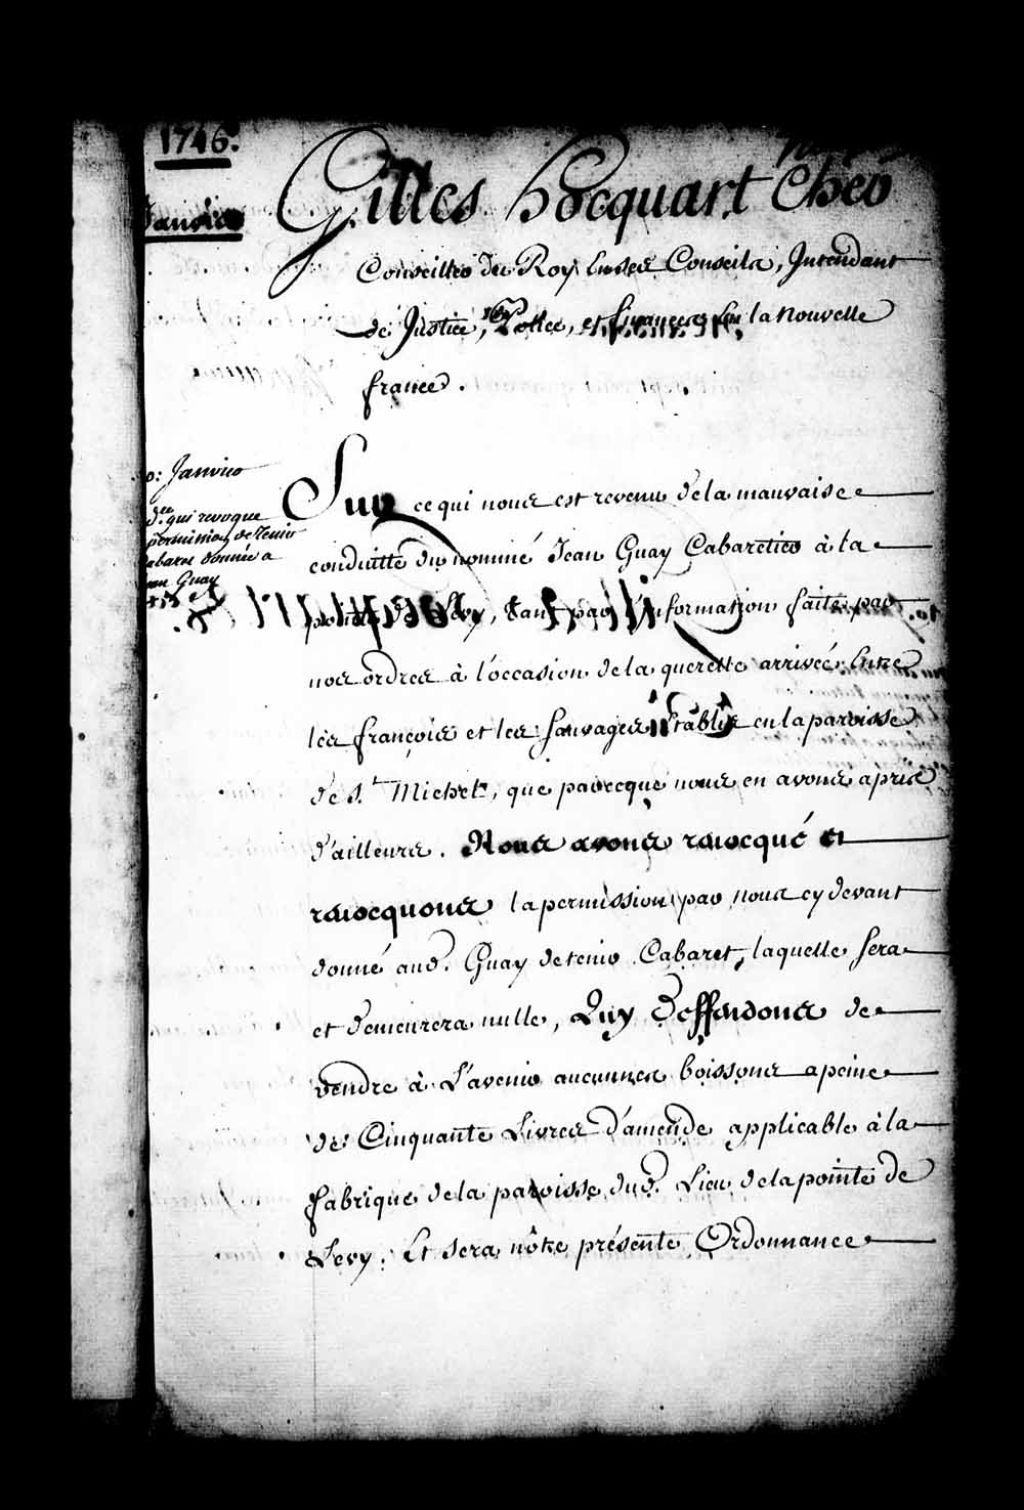 1746.
Janvier
Gilles hocquart Cher
Conseiller du Roy En ses Conseils, Intendant
de Justice, Police, et finances En la Nouvelle
france.
Janvier
qui revoque
permission de Tenir
Cabaret donnée a
Guay
Sur ce qui nous est revenu de la mauvaise
conduitte du nommé Jean Guay Cabaretier à la
pointe de Levy, tant par l'information faite par
nos ordres à l'occasion de la querelle arrivée Entre
les françois et les Sauvages Etablis en la paroisse
de St. Michel, que parceque nous en avons apris
d'ailleurs. Nous avons revocqué et
revocquons la permission par nous cy devant
donné aud. Guay de tenir Cabaret, laquelle sera
et demeurera nulle, Luy Deffendons de
vendre à L'avenir aucunnes boissons a peine
de Cinquante Livres d'amende applicable à la
fabrique de la paroisse dud. Lieu de la pointe de
Levy. Et sera nôtre présente Ordonnance